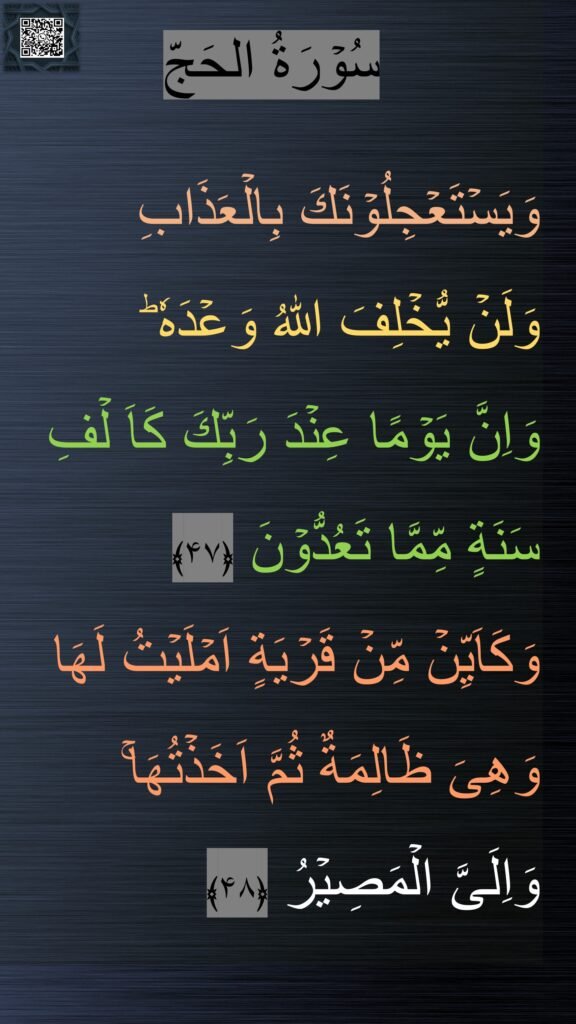 سُوۡرَةُ الحَجّ
وَيَسۡتَعۡجِلُوۡنَكَ بِالۡعَذَابِ
وَلَنۡ يُّخۡلِفَ اللّٰهُ وَعۡدَهٗ ؕ
وَاِنَّ يَوۡمًا عِنۡدَ رَبِّكَ كَاَ لۡفِ
سَنَةٍ مِّمَّا تَعُدُّوۡنَ ﴿۴۷﴾
وَكَاَيِّنۡ مِّنۡ قَرۡيَةٍ اَمۡلَيۡتُ لَهَا
وَهِىَ ظَالِمَةٌ ثُمَّ اَخَذۡتُهَا ۚ
وَاِلَىَّ الۡمَصِيۡرُ ﴿۴۸﴾